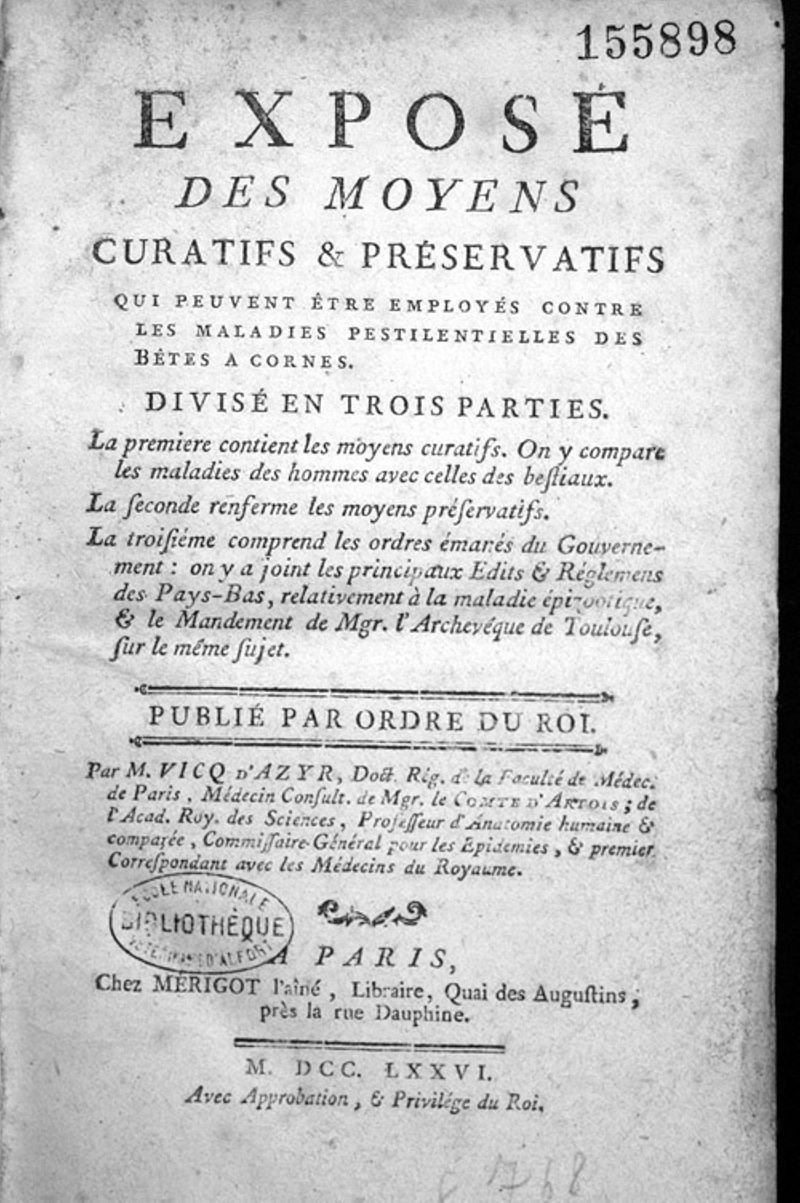 155898
EXPOSÉ
DES MOYENS
CURATIFS & PRÉSERVATIFS
QUI PEUVENT ÊTRE EMPLOYÉS CONTRE
LES MALADIES PESTILENTIELLES DES
BÊTES A CORNES.
DIVISÉ EN TROIS PARTIES.
La premiere contient les moyens curatifs. On y compare
les maladies des hommes avec celles des beſtiaux.
La ſeconde renferme les moyens préſervatifs.
La troiſiéme comprend les ordres émanés du Gouverne-
ment : on y a joint les principaux Edits & Réglemens
des Pays-Bas, relativement à la maladie épizootique,
& le Mandement de Mgr. l'Archevéque de Toulouſe,
ſur le même ſujet.
PUBLIÉ PAR ORDRE DU ROI.
Par M. VICQ D'AZYR, Doct. Rég. de la Faculté de Médec.
de Paris, Médecin Conſult. de Mgr. le COMTE D'ARTOIS ; de
l'Acad. Roy. des Sciences, Profeſſeur d'Anatomie humaine &
comparée, Commiſſaire-Général pour les Epidemies, & premier
Correſpondant avec les Médecins du Royaume.
ECOLE NATIONALE
BIBLIOTHÈQUE
D'ALFORT
A PARIS,
Chez MÉRIGOT l'aîné, Libraire, Quai des Auguſtins ;
près la rue Dauphine.
M. DCC. LXXVI.
Avec Approbation, & Privilége du Roi.